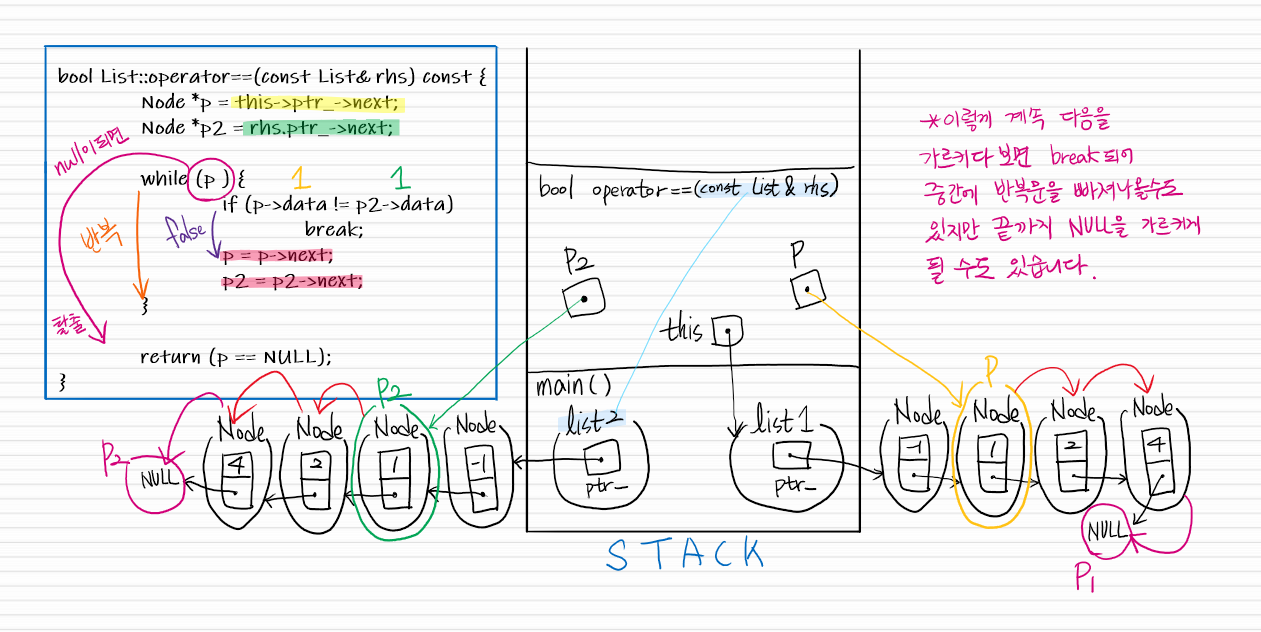 bool List::operator==(const List& rhs) const {
Node *p = this->ptr_->next;
Node *p2 = rhs.ptr_->next;
null이되면
while (p) {
1
1
if (p->data != p2->data)
break;
반복
false
p = p->next;
p2 = p2->next;
}
탈출
return (p == NULL);
}
bool operator==(const List & rhs)
P2
P
this
main()
list2
ptr_
list1
ptr_
STACK
*이렇게 계속 다음을
가르키다 보면 break 되어
중간에 반복문을 빠져나올수도
있지만 끝까지 NULL을 가르키게
될 수도 있습니다.
P2
P2
NULL
Node
4
Node
2
Node
1
Node
-1
Node
-1
P
Node
1
Node
2
Node
4
NULL
P1